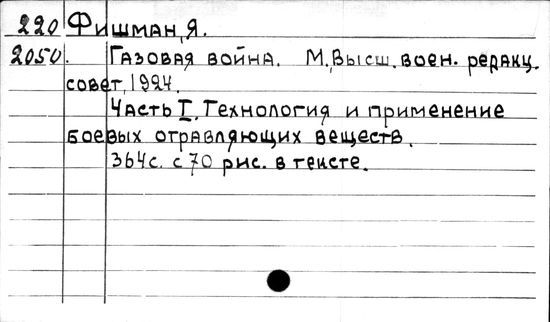 220 Фишман, Я.
2050. Газовая война. М., Высш. воен. редакц.
совет, 1924.
Часть I. Технология и применение
боевых отравляющих веществ.
364с. с 70 рис. в тексте.